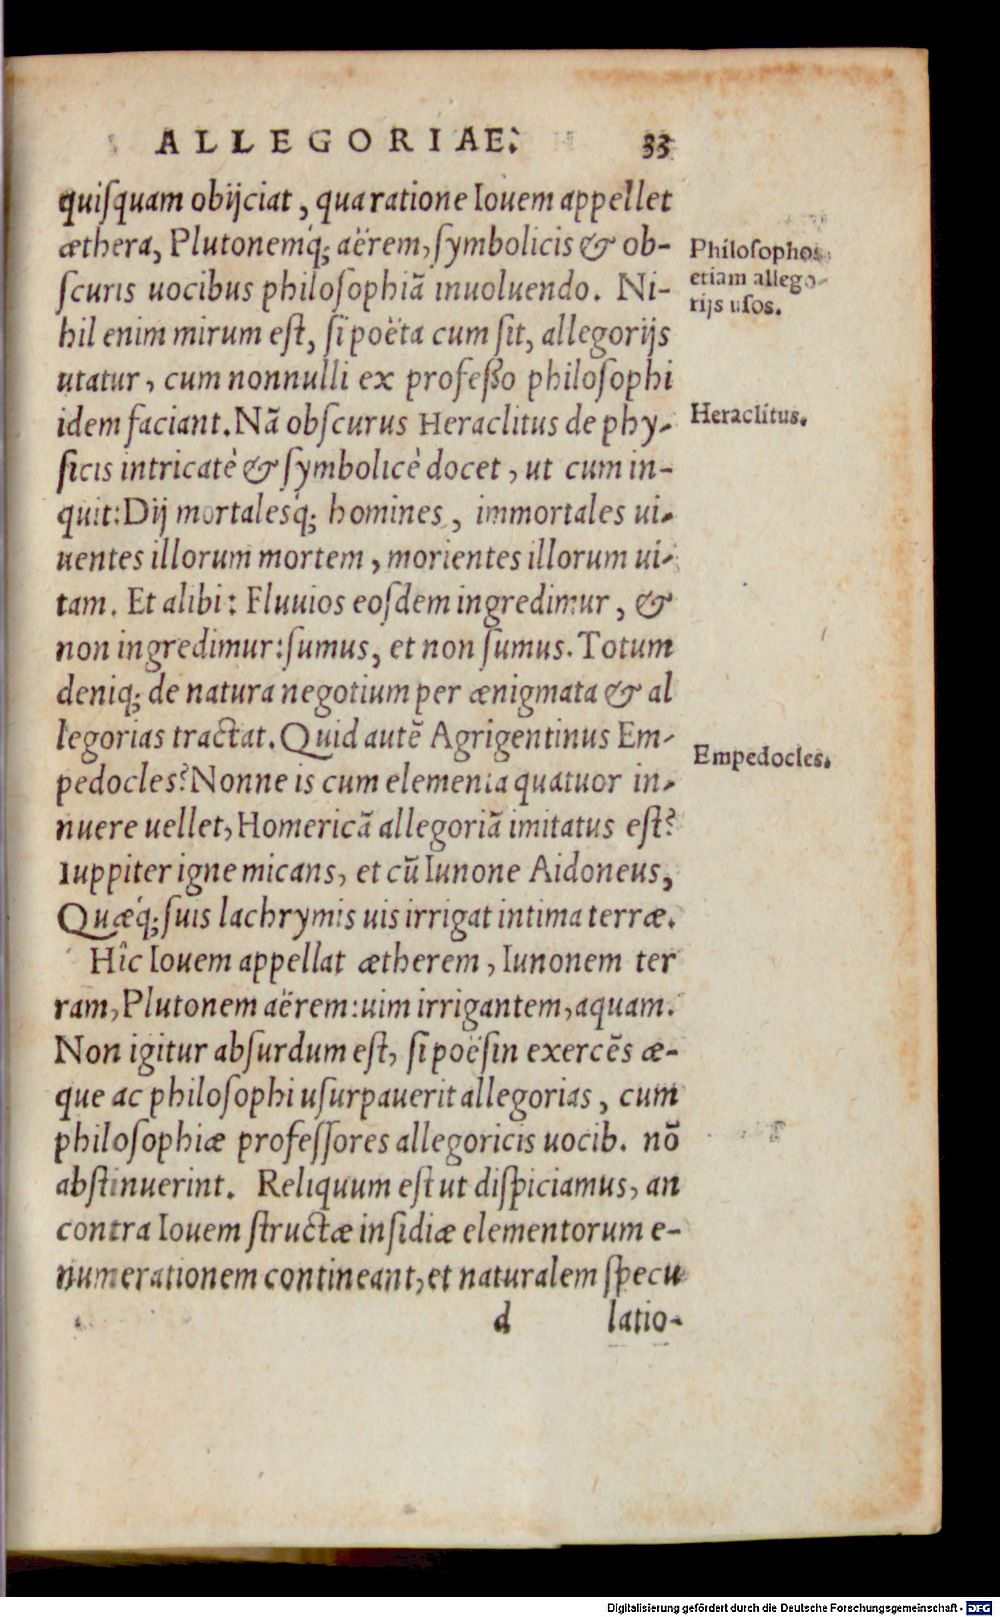 ALLEGORIAE. 33
quiſquam obijciat, qua ratione Iouem appellet
æthera, Plutonemq́; aërem, ſymbolicis & ob-
ſcuris uocibus philoſophiã inuoluendo. Ni-
hil enim mirum eſt, ſi poëta cum ſit, allegorijs
utatur, cum nonnulli ex profeßo philoſophi
idem faciant. Nã obſcurus Heraclitus de phy-
ſicis intricatè & ſymbolicè docet, ut cum in-
quit: Dij mortalesq́; homines, immortales ui-
uentes illorum mortem, morientes illorum ui-
tam. Et alibi: Fluuios eoſdem ingredimur, &
non ingredimur: ſumus, et non ſumus. Totum
deniq; de natura negotium per ænigmata & al
legorias tractat. Quid autẽ Agrigentinus Em-
pedocles? Nonne is cum elementa quatuor in-
nuere uellet, Homericã allegoriã imitatus eſt?
Iuppiter igne micans, et cũ Iunone Aidoneus,
Quæq́; ſuis lachrymis uis irrigat intima terræ.
Hîc Iouem appellat ætherem, Iunonem ter
ram, Plutonem aërem: uim irrigantem, aquam.
Non igitur abſurdum eſt, ſi poëſin exercẽs æ-
que ac philoſophi uſurpauerit allegorias, cum
philoſophiæ profeſſores allegoricis uocib. nõ
abſtinuerint. Reliquum eſt ut diſpiciamus, an
contra Iouem ſtructæ inſidiæ elementorum e-
numerationem contineant, et naturalem ſpecu
d latio-
Philoſophos
etiam allego-
rijs uſos.
Heraclitus.
Empedocles.
Digitalisierung gefördert durch die Deutsche Forschungsgemeinschaft - DFG